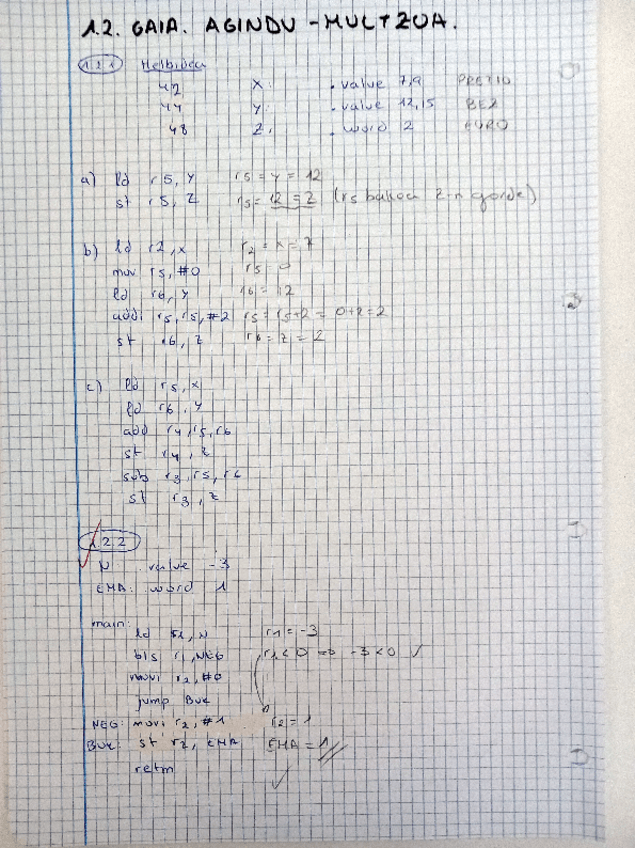 1.2. GAIA. AGINDU-MULTZOA.
1.2.1 Helbidea
42 X: .value 7,9 PREZIO
44 Y: .value 12,15 BEZ
48 Z: .word 2 EURO
a) ld r5, Y r5 = Y = 12
st r5, Z r5 = 12 = Z (r5 balioa Z-n gorde)
b) ld r2, x r2 = x = 7
mov r5, #0 r5 = 0
ld r6, Y r6 = 12
addi r5, r5, #2 r5 = r5+2 = 0+2 = 2
st r6, z r6 = z = 2
c) ld r5, x
ld r6, Y
add r4, r5, r6
st r4, z
sub r3, r5, r6
st r3, z
1.2.2
N: .value -3
EMA: word 1
main:
ld r1, N r1 = -3
bls r1, NEG r1 < 0 => -3 < 0 ✓
movi r2, #0
jump Buk
NEG: movi r2, #1 r2 = 1
BUK: st r2, EMA EMA = 1
retm